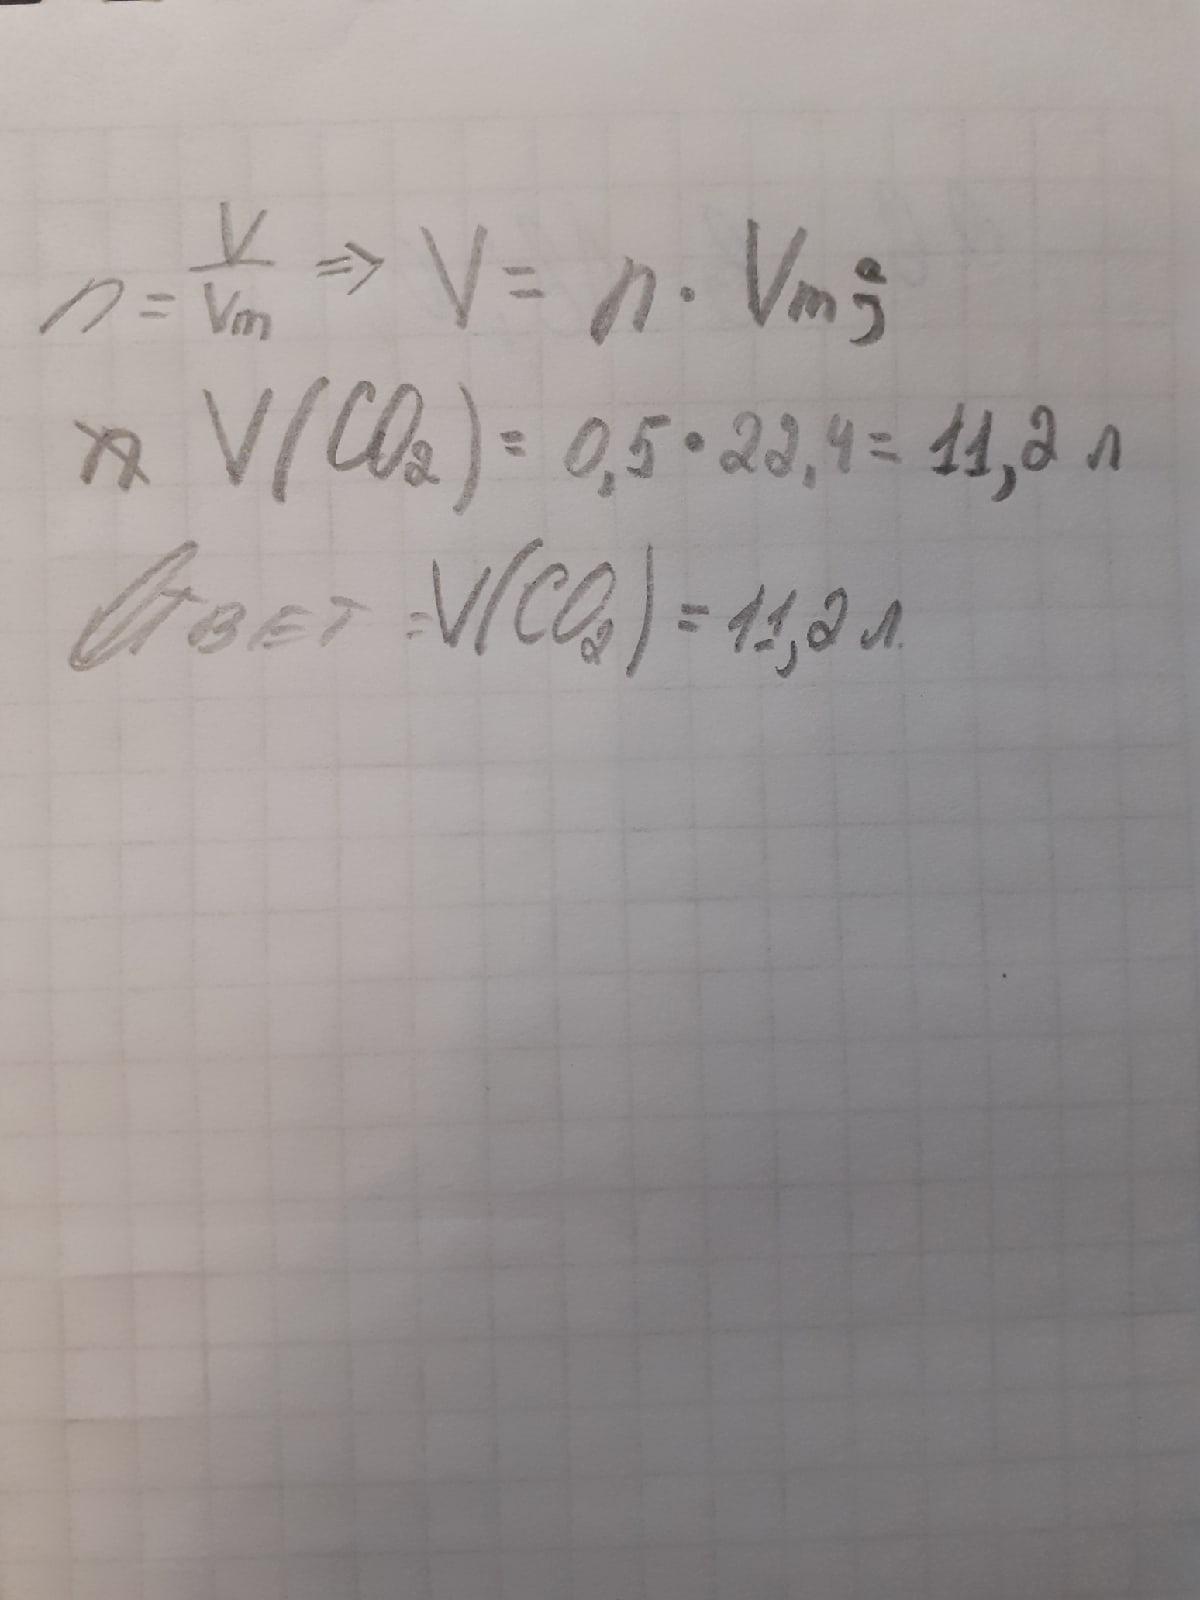 n = V/Vm ⇒ V = n · Vm;
V(CO₂) = 0,5 · 22,4 = 11,2 л
Ответ: V(CO₂) = 11,2 л.